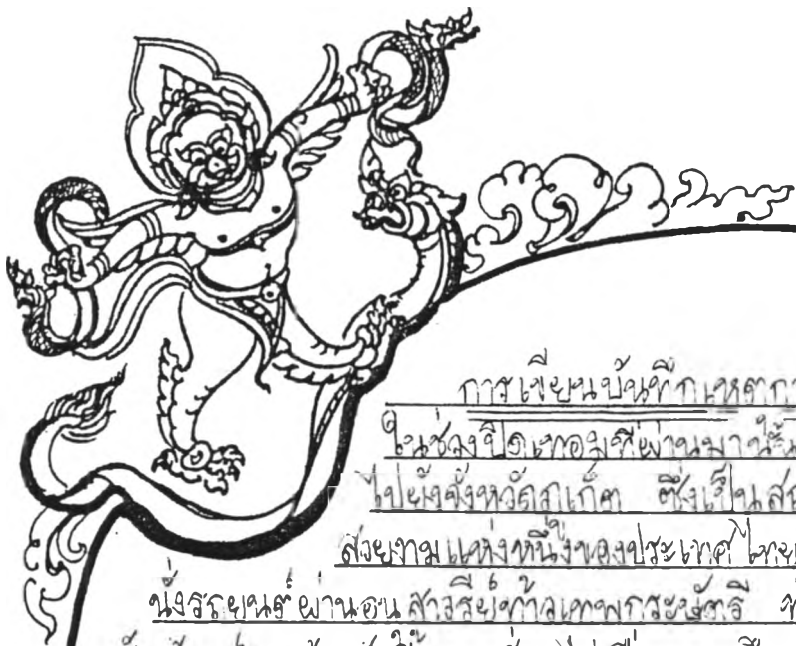 การเขียนบันทึกเหตุกา
ในช่วงปิดเทอมที่ผ่านมานั้น
ไปยังจังหวัดภูเก็ต ซึ่งเป็นสถ
สวยงามแห่งหนึ่งของประเทศไทย
นั่งรถยนต์ผ่านอนุสาวรีย์ท้าวเทพกระษัตรี